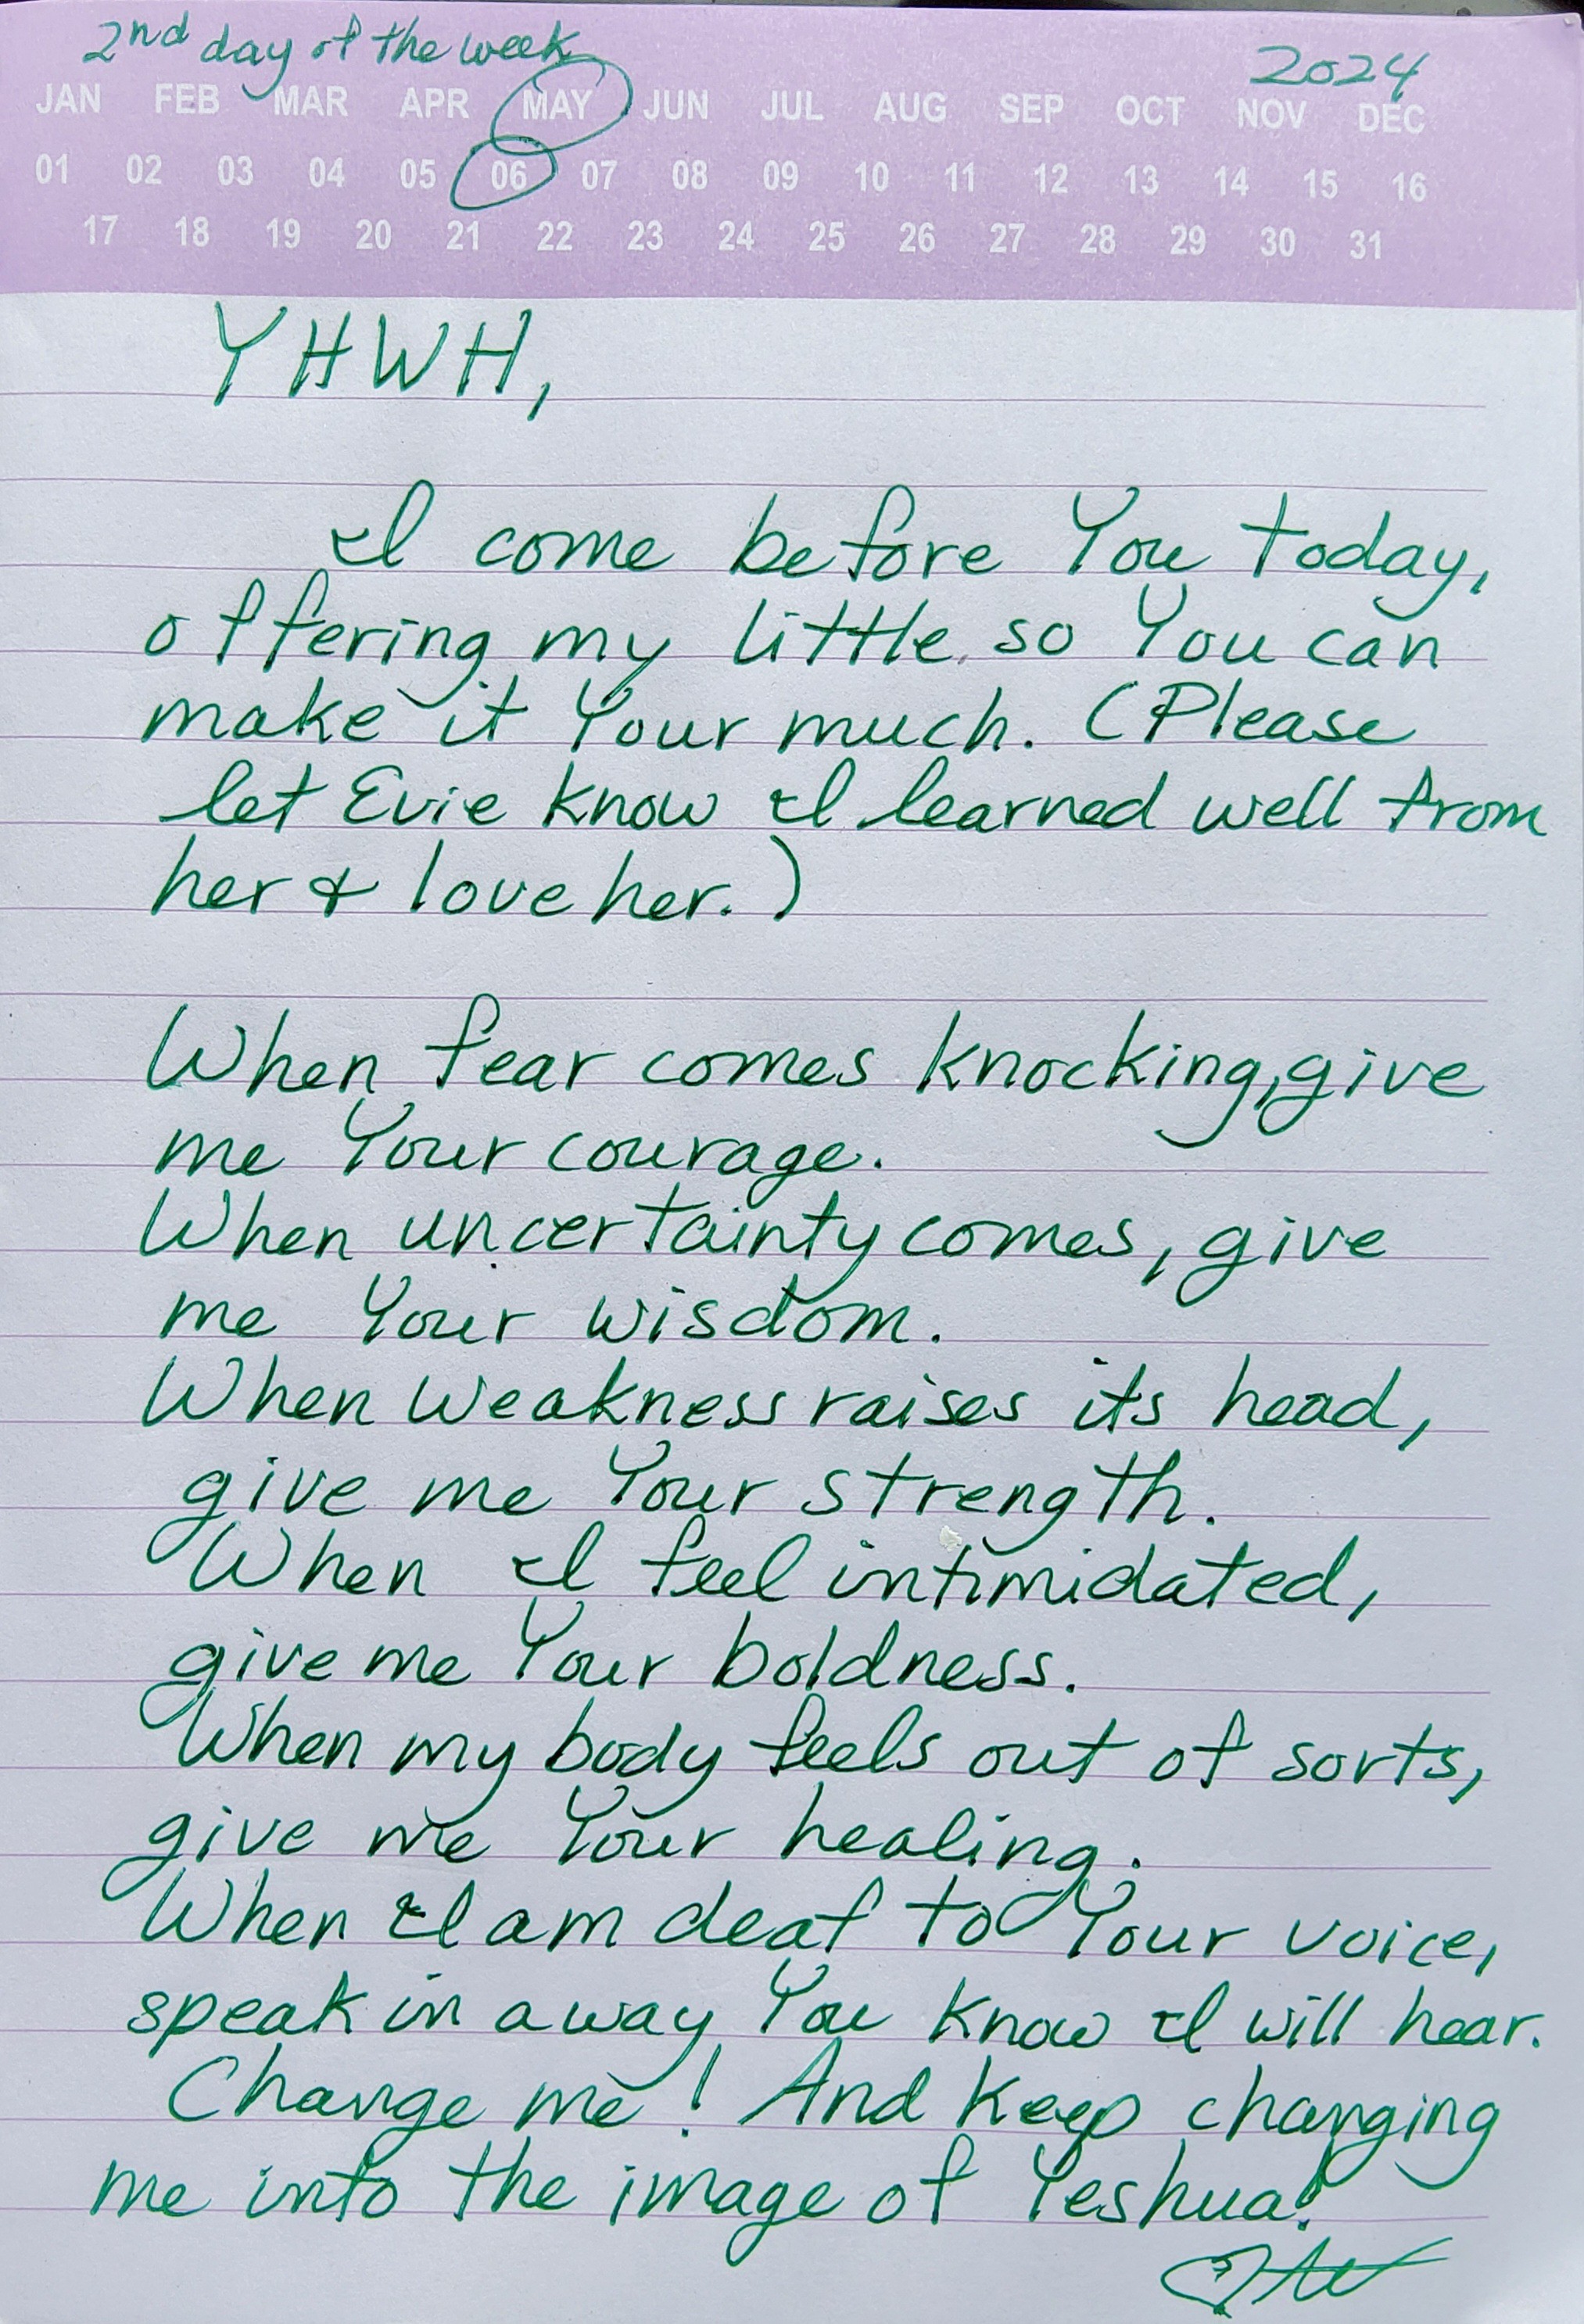 2nd day of the week 2024
JAN FEB MAR APR MAY JUN JUL AUG SEP OCT NOV DEC
01 02 03 04 05 06 07 08 09 10 11 12 13 14 15 16
17 18 19 20 21 22 23 24 25 26 27 28 29 30 31
YHWH,
I come before You today,
offering my little so You can
make it Your much. (Please
let Evie know I learned well from
her & love her.)
When fear comes knocking, give
me Your courage.
When uncertainty comes, give
me Your wisdom.
When weakness raises its head,
give me Your strength.
When I feel intimidated,
give me Your boldness.
When my body feels out of sorts,
give me Your healing.
When I am deaf to Your voice,
speak in a way You know I will hear.
Change me! And keep changing
me into the image of Yeshua!